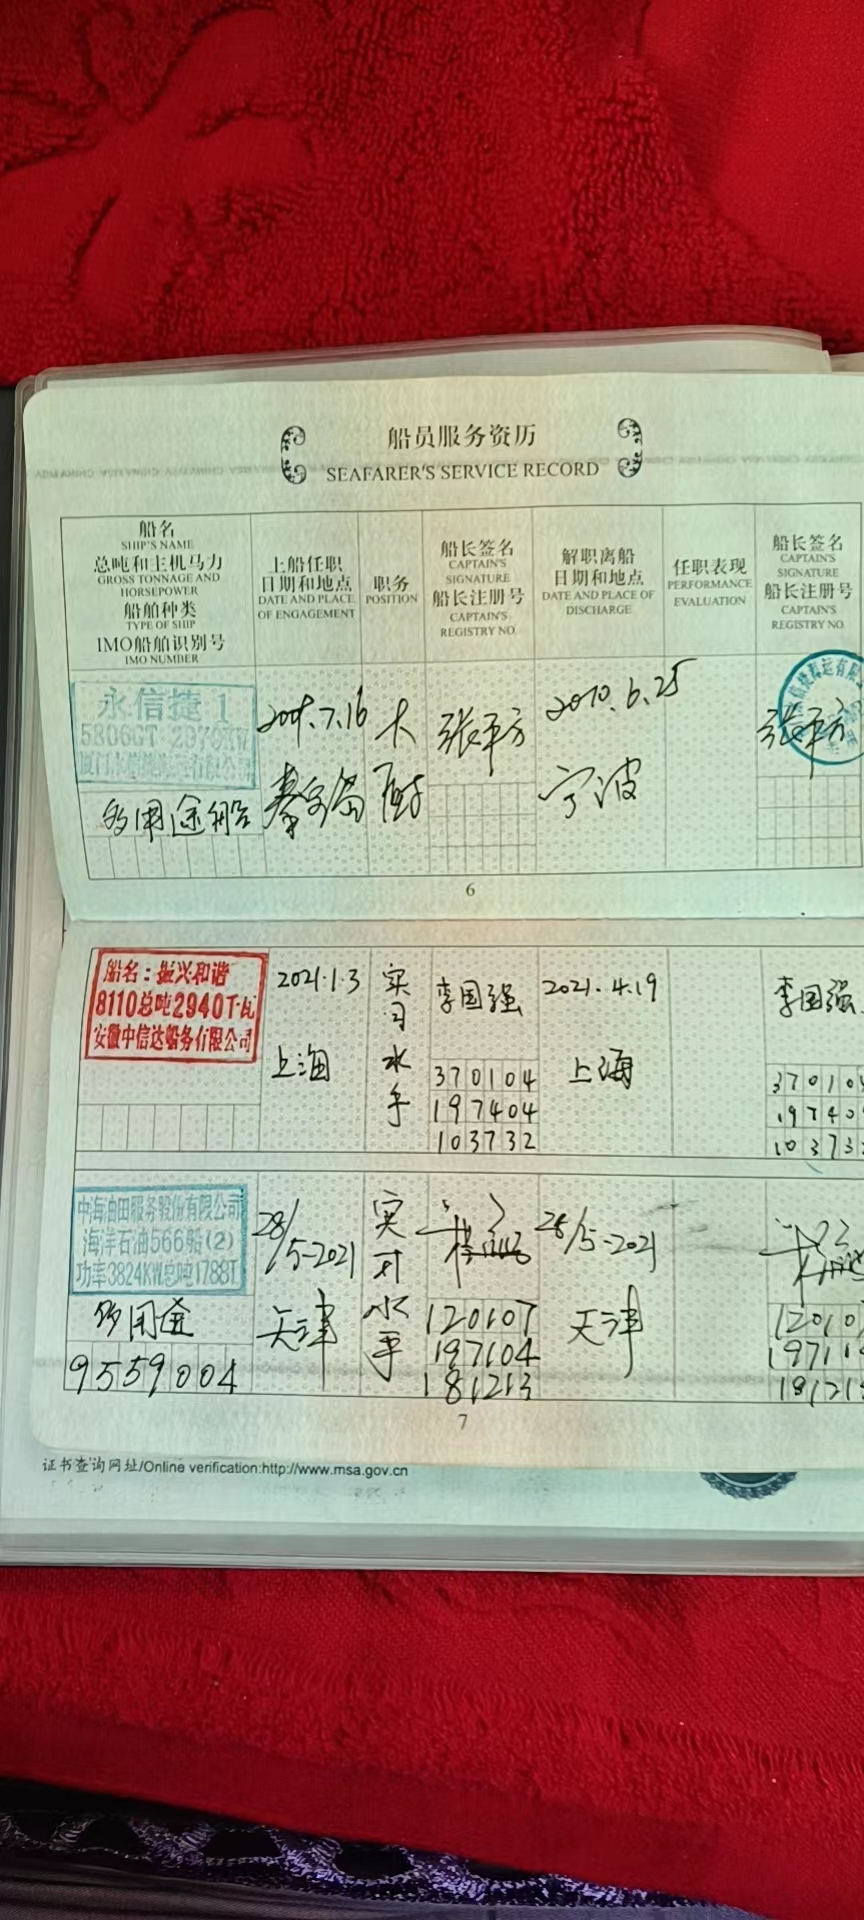 船员服务资历
SEAFARER'S SERVICE RECORD
船名
SHIP'S NAME
总吨和主机马力
GROSS TONNAGE AND
HORSEPOWER
船舶种类
TYPE OF SHIP
IMO船舶识别号
IMO NUMBER
上船任职
日期和地点
DATE AND PLACE
OF ENGAGEMENT
职务
POSITION
船长签名
CAPTAIN'S
SIGNATURE
船长注册号
CAPTAIN'S
REGISTRY NO.
解职离船
日期和地点
DATE AND PLACE OF
DISCHARGE
任职表现
PERFORMANCE
EVALUATION
船长签名
CAPTAIN'S
SIGNATURE
船长注册号
CAPTAIN'S
REGISTRY NO.
永信捷1
5806GT 2970KW
多用途船
7.16
秦皇岛
大厨
张平方
6.25
宁波
张平方
6
船名：振兴和谐
8110总吨2940千瓦
安徽中信达船务有限公司
2021.1.3
上海
实习水手
李国强
370104
197404
103732
2021.4.19
上海
李国强
37010
19740
10373
中海油田服务股份有限公司
海洋石油566船(2)
功率3824KW总吨1788T
多用途
9559004
28/5-2021
天津
实习水手
120107
197104
181213
28/5-2021
天津
12010
1971
1812
7
证书查询网址/Online verification:http://www.msa.gov.cn